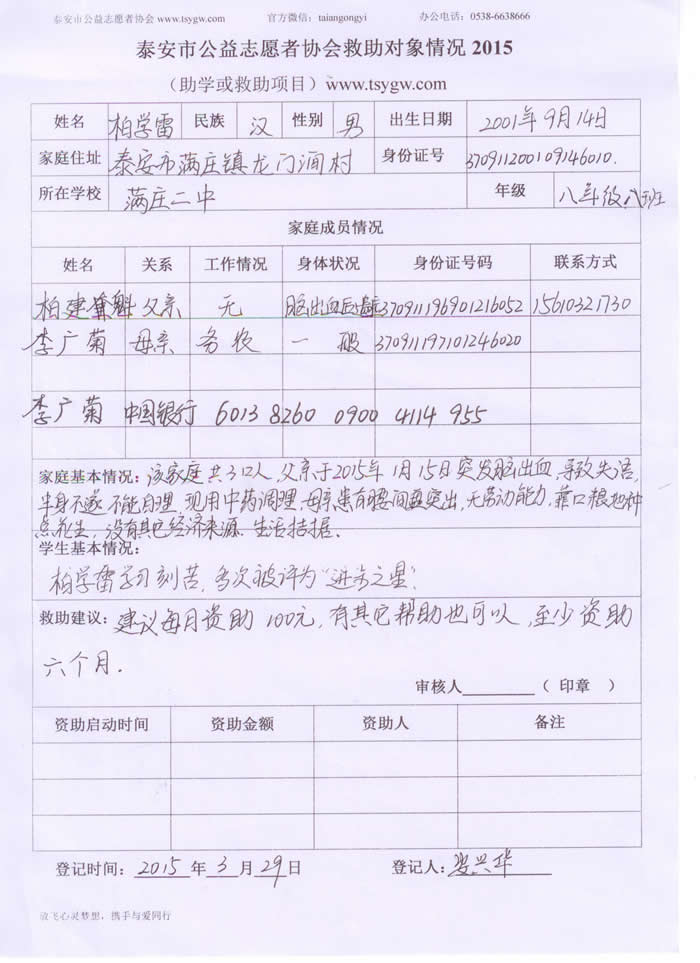 泰安市公益志愿者协会 www.tsygw.com 官方微信：taiangongyi 办公电话：0538-6638666
泰安市公益志愿者协会救助对象情况 2015
（助学或救助项目）www.tsygw.com
姓名 柏学雷 民族 汉 性别 男 出生日期 2001年9月14日
家庭住址 泰安市满庄镇龙门涧村 身份证号 370911200109146010.
所在学校 满庄二中 年级 八年级八班
家庭成员情况
姓名 关系 工作情况 身体状况 身份证号码 联系方式
柏建魁 父亲 无 脑出血 370911196901216052 15610321730
李广菊 母亲 务农 一般 370911197101246020
李广菊 中国银行 6013 8260 0900 4114 955
家庭基本情况：该家庭共3口人，父亲于2015年1月15日突发脑出血，导致失语，
半身不遂，不能自理，现用中药调理，母亲患有腰间盘突出，无劳动能力，靠口粮地种
点花生，没有其它经济来源。生活拮据．
学生基本情况：
柏学雷学习刻苦，多次被评为“进步之星”．
救助建议：建议每月资助100元，有其它帮助也可以，至少资助
六个月．
审核人 （ 印章 ）
资助启动时间 资助金额 资助人 备注
登记时间：2015 年 3 月 29 日 登记人：兴华
放飞心灵梦想，携手与爱同行